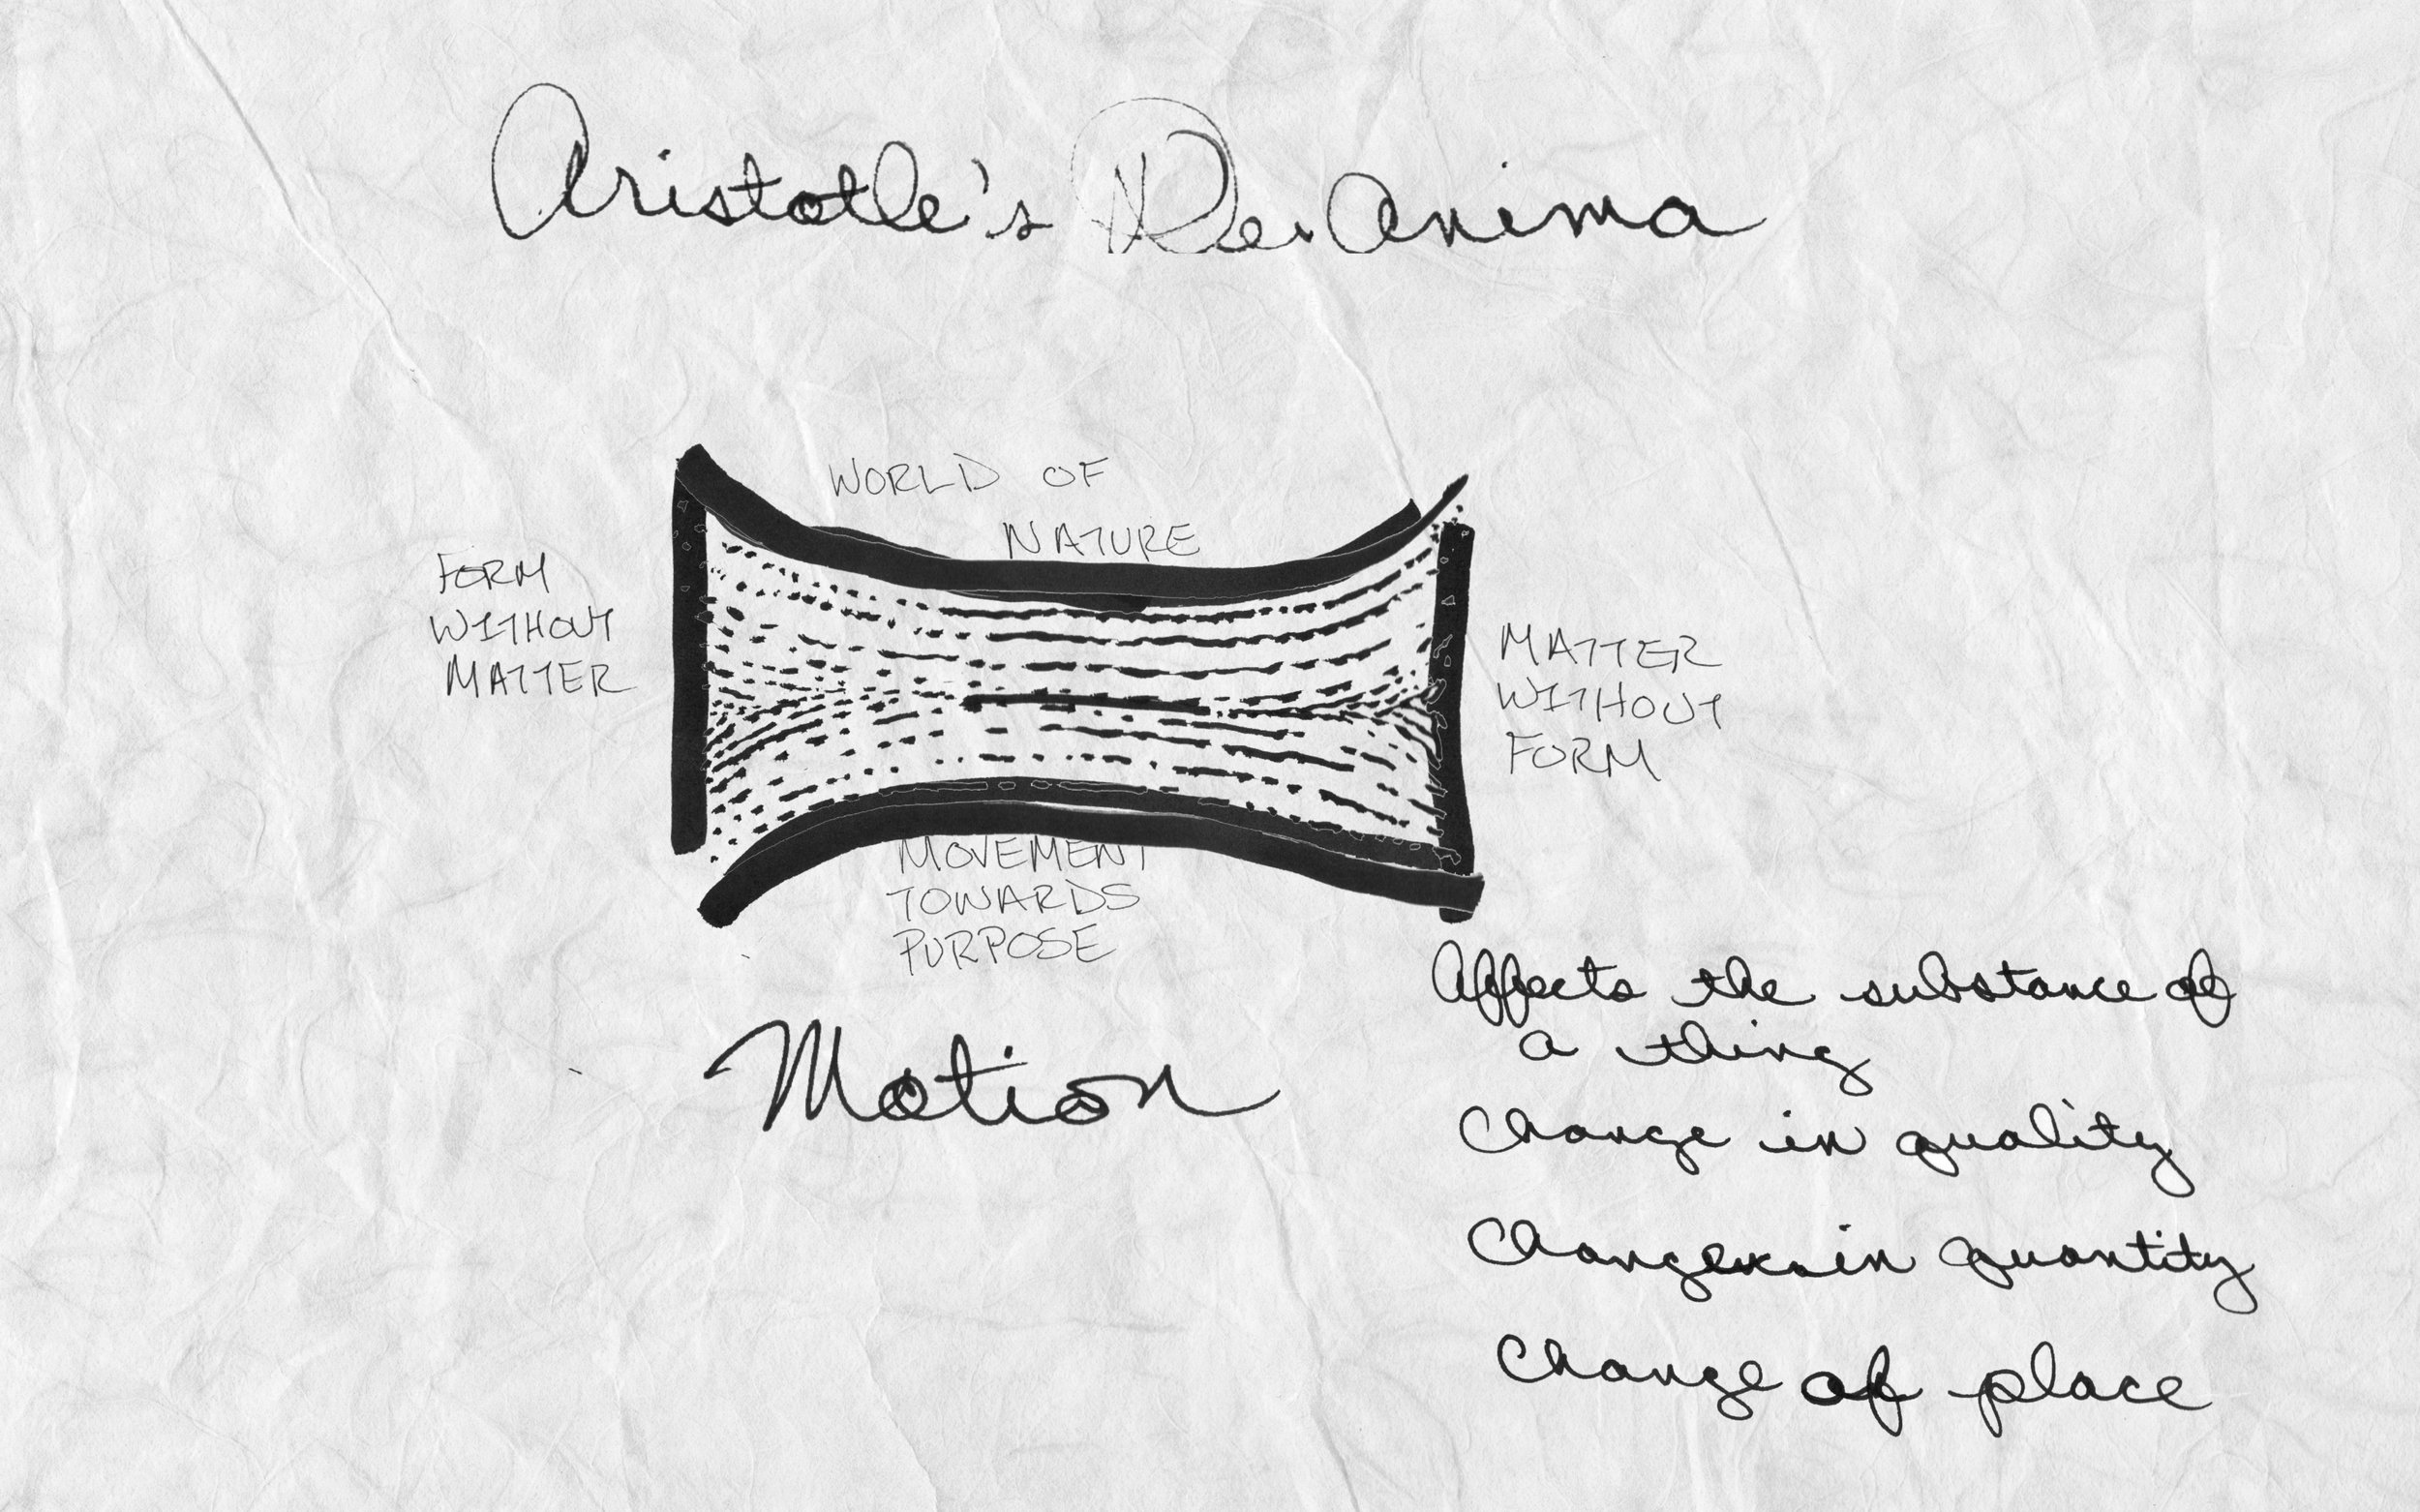 Aristotle's De Anima
WORLD OF
NATURE
FORM
WITHOUT
MATTER
MATTER
WITHOUT
FORM
MOVEMENT
TOWARDS
PURPOSE
Motion
Affects the substance of
a thing
Change in quality
Change in quantity
Change of place